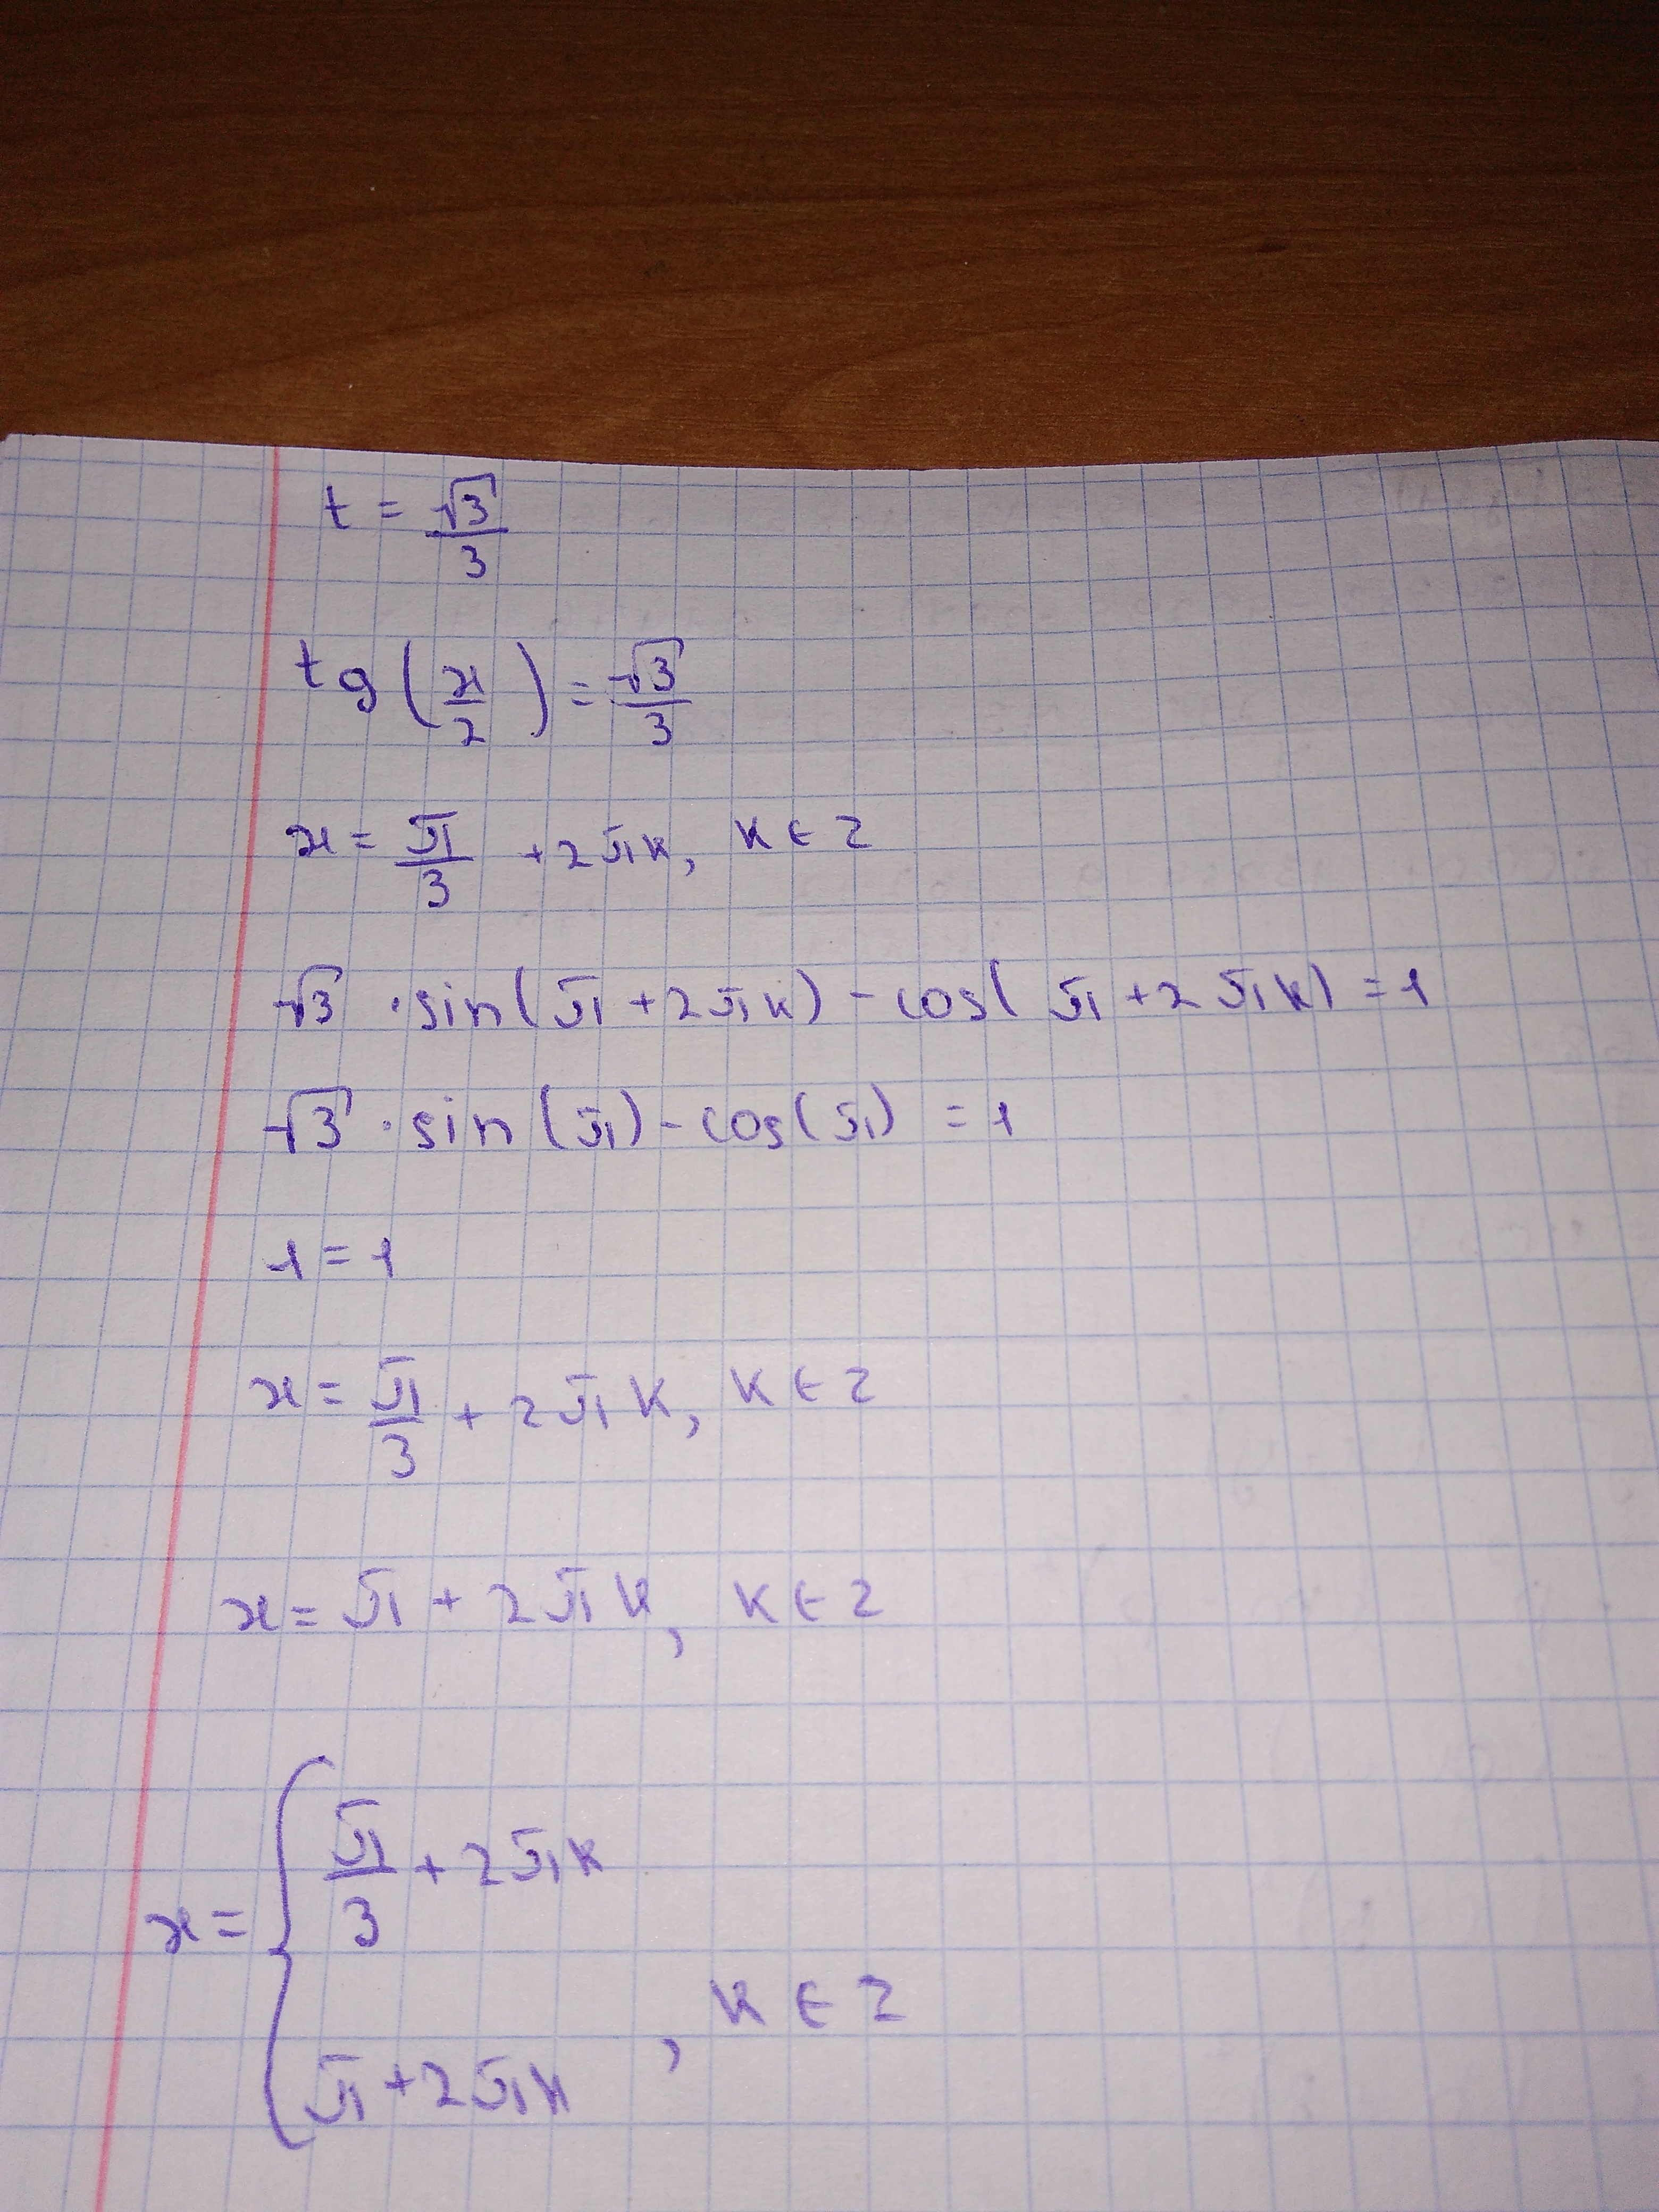 t = √3/3
tg(x/2) = √3/3
x = π/3 + 2πk, k ∈ Z
√3 · sin(π + 2πk) - cos(π + 2πk) = 1
√3 · sin(π) - cos(π) = 1
1 = 1
x = π/3 + 2πk, k ∈ Z
x = π + 2πk, k ∈ Z
x = { π/3 + 2πk
π + 2πk , k ∈ Z